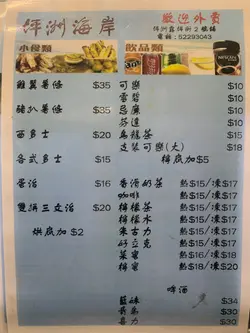 坪洲海岸
歡迎外賣
電話:52293043
小食類
飲品類
雞翼薯條 $35
豬扒薯條 $35
西多士 $20
各式多士 $15
蛋治 $16
雙拼三文治 $20
烘底加$2
可樂 $10
雪碧 $10
忌廉 $10
芬達 $10
烏龍茶 $15
支裝可樂(大) $18
檸底加$5
香滑奶茶 熱$15/凍$17
咖啡 熱$15/凍$17
檸檬茶 熱$15/凍$17
檸檬水 熱$15/凍$17
朱古力 熱$15/凍$17
好立克 熱$15/凍$17
菜蜜 熱$16/凍$18
檸蜜 熱$17/凍$20
啤酒
藍妹 $34
$30
喜力 $30